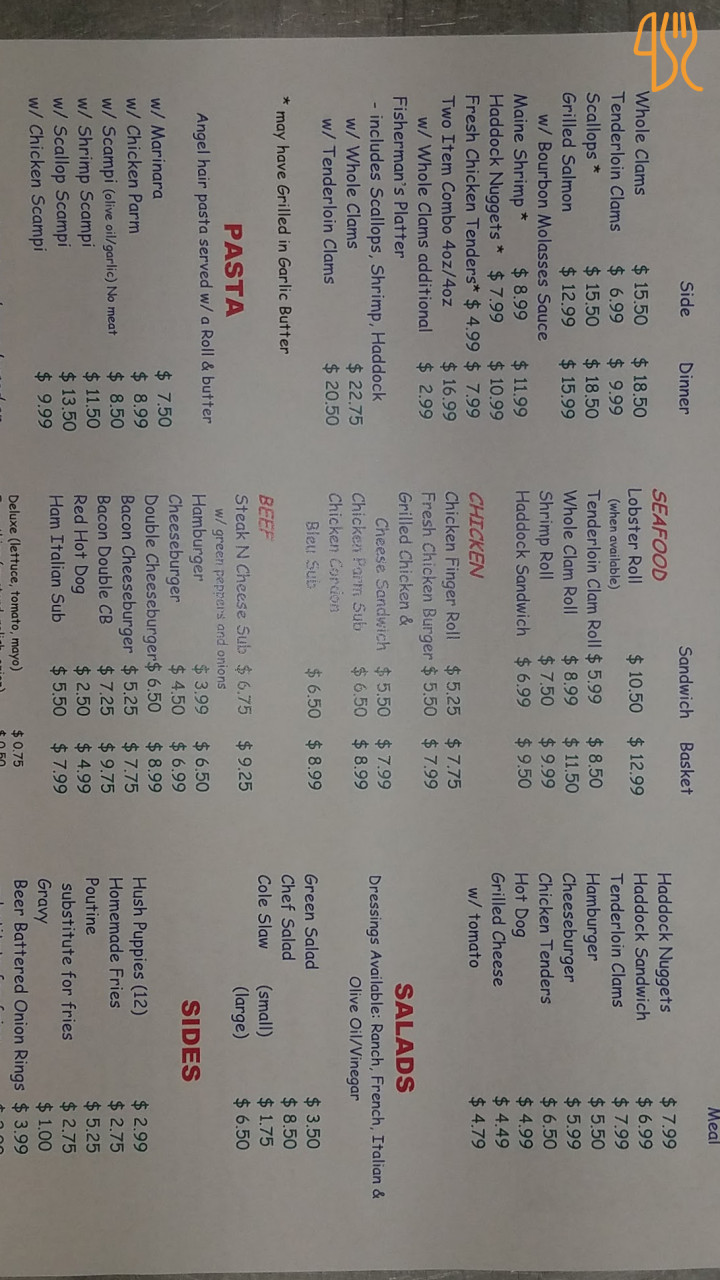 Side Dinner
Whole Clams $ 15.50 $ 18.50
Tenderloin Clams $ 6.99 $ 9.99
Scallops * $ 15.50 $ 18.50
Grilled Salmon $ 12.99 $ 15.99
w/ Bourbon Molasses Sauce
Maine Shrimp * $ 8.99 $ 11.99
Haddock Nuggets * $ 7.99 $ 10.99
Fresh Chicken Tenders* $ 4.99 $ 7.99
Two Item Combo 4oz/4oz $ 16.99
w/ Whole Clams additional $ 2.99
Fisherman's Platter
- includes Scallops, Shrimp, Haddock
w/ Whole Clams $ 22.75
w/ Tenderloin Clams $ 20.50
* may have Grilled in Garlic Butter
PASTA
Angel hair pasta served w/ a Roll & butter
w/ Marinara $ 7.50
w/ Chicken Parm $ 8.99
w/ Scampi (olive oil/garlic) No meat $ 8.50
w/ Shrimp Scampi $ 11.50
w/ Scallop Scampi $ 13.50
w/ Chicken Scampi $ 9.99
Sandwich Basket
SEAFOOD
Lobster Roll $ 10.50 $ 12.99
(when available)
Tenderloin Clam Roll $ 5.99 $ 8.50
Whole Clam Roll $ 8.99 $ 11.50
Shrimp Roll $ 7.50 $ 9.99
Haddock Sandwich $ 6.99 $ 9.50
CHICKEN
Chicken Finger Roll $ 5.25 $ 7.75
Fresh Chicken Burger $ 5.50 $ 7.99
Grilled Chicken &
Cheese Sandwich $ 5.50 $ 7.99
Chicken Parm Sub $ 6.50 $ 8.99
Chicken Cordon
Bleu Sub $ 6.50 $ 8.99
BEEF
Steak N Cheese Sub $ 6.75 $ 9.25
w/ green peppers and onions
Hamburger $ 3.99 $ 6.50
Cheeseburger $ 4.50 $ 6.99
Double Cheeseburger$ 6.50 $ 8.99
Bacon Cheeseburger $ 5.25 $ 7.75
Bacon Double CB $ 7.25 $ 9.75
Red Hot Dog $ 2.50 $ 4.99
Ham Italian Sub $ 5.50 $ 7.99
Deluxe (lettuce, tomato, mayo) $ 0.75
$ 0.50
Meal
Haddock Nuggets $ 7.99
Haddock Sandwich $ 6.99
Tenderloin Clams $ 7.99
Hamburger $ 5.50
Cheeseburger $ 5.99
Chicken Tenders $ 6.50
Hot Dog $ 4.99
Grilled Cheese $ 4.49
w/ tomato $ 4.79
SALADS
Dressings Available: Ranch, French, Italian &
Olive Oil/Vinegar
Green Salad $ 3.50
Chef Salad $ 8.50
Cole Slaw (small) $ 1.75
(large) $ 6.50
SIDES
Hush Puppies (12) $ 2.99
Homemade Fries $ 2.75
Poutine $ 5.25
substitute for fries $ 2.75
Gravy $ 1.00
Beer Battered Onion Rings $ 3.99